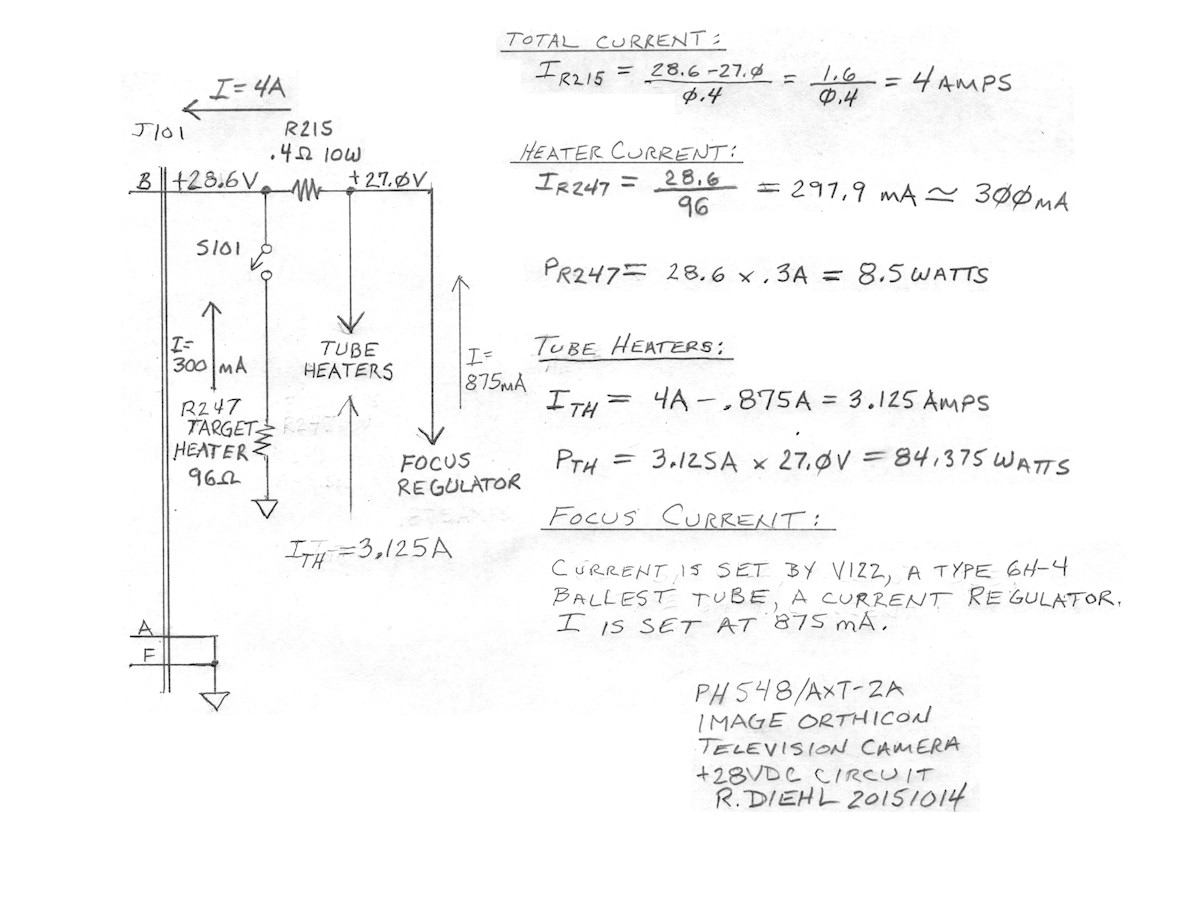 I = 4A
J101
R215
.4Ω 10W
B +28.6V +27.0V
S101
I=
300 mA
R247
TARGET
HEATER
96Ω
TUBE
HEATERS
I=
875mA
FOCUS
REGULATOR
I TH = 3.125A
A
F
TOTAL CURRENT:
I R215 = 28.6 - 27.0 / 0.4 = 1.6 / 0.4 = 4 AMPS
HEATER CURRENT:
I R247 = 28.6 / 96 = 297.9 mA ≃ 300mA
P R247 = 28.6 x .3A = 8.5 WATTS
TUBE HEATERS:
I TH = 4A - .875A = 3.125 AMPS
P TH = 3.125A x 27.0V = 84.375 WATTS
FOCUS CURRENT:
CURRENT IS SET BY V122, A TYPE 6H-4
BALLEST TUBE, A CURRENT REGULATOR.
I IS SET AT 875 mA.
PH548/AXT-2A
IMAGE ORTHICON
TELEVISION CAMERA
+28VDC CIRCUIT
R. DIEHL 20151014